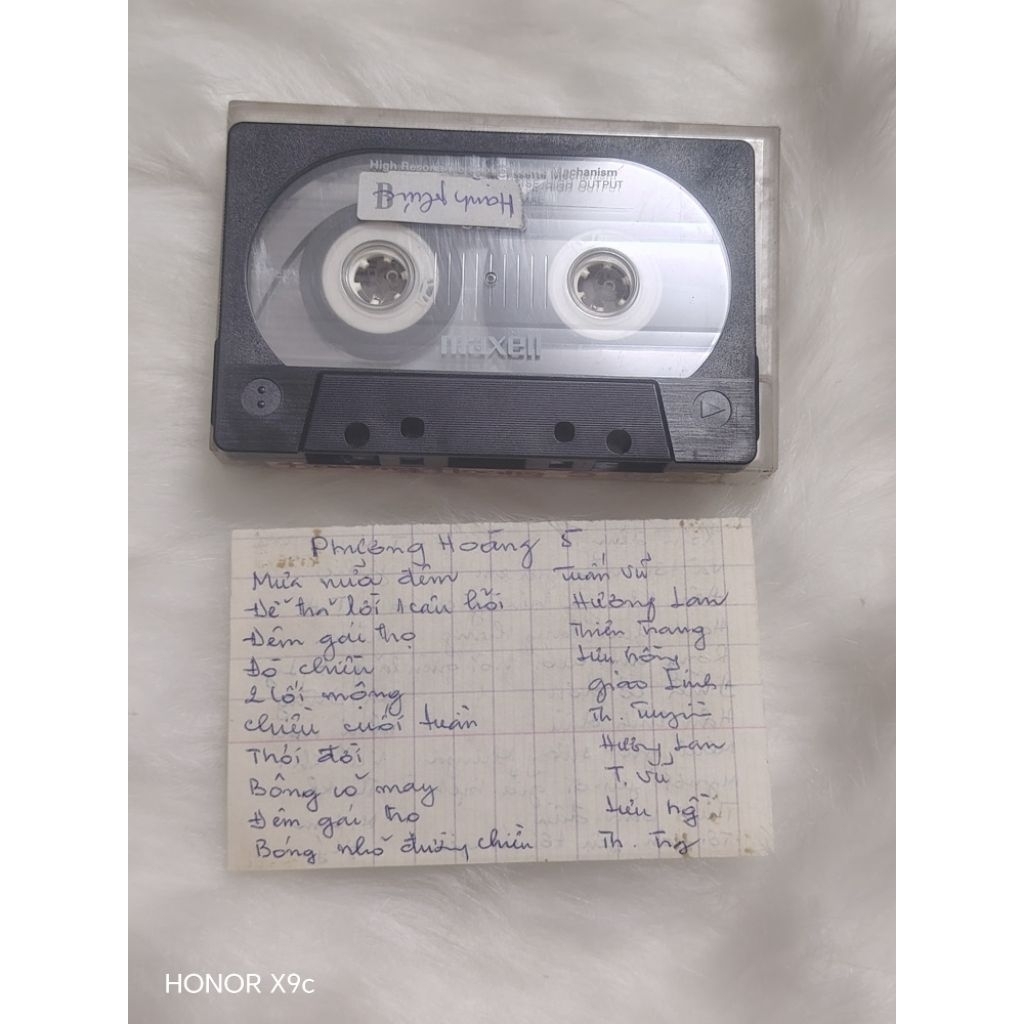 High Mechanism
OUTPUT
B Hạnh phúc
maxell
Phượng Hoàng 5
Mưa nửa đêm Tuấn Vũ
Để trả lời 1 câu hỏi Hương Lan
Đêm gái thọ Thiên Trang
Đò chiều Lưu Hồng
2 lối mộng Giao Linh
Chiều cuối tuần Th. Tuyền
Thói đời Hương Lan
Bông cỏ may T. Vũ
Đêm gái thọ Lưu Hồ
Bóng nhỏ đường chiều Th. Trg
HONOR X9c